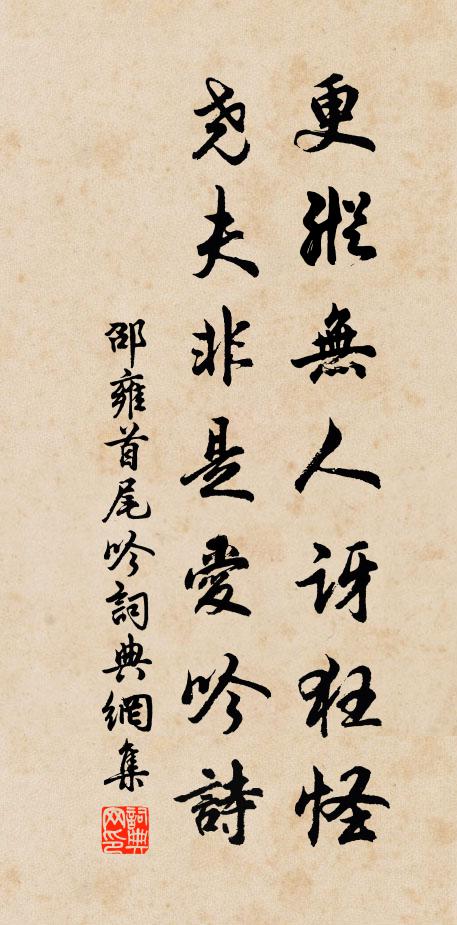 更縱無人訝狂怪
堯夫非是愛吟詩
邵雍首尾吟詞典網集
詞典网印